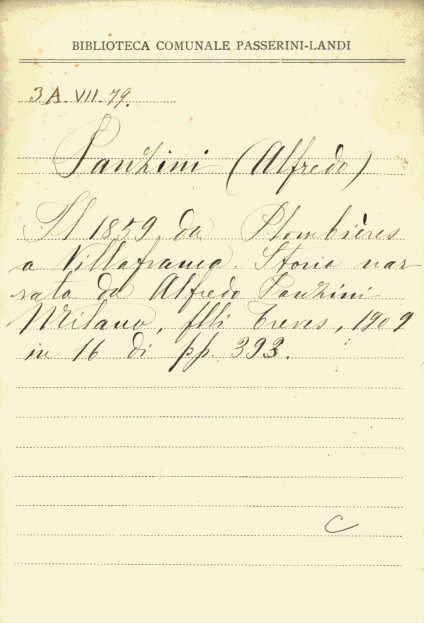 BIBLIOTECA COMUNALE PASSERINI-LANDI
3A. VII. 79.
Panzini (Alfredo)
Il 1859 da Plombières
a Villafranca. Storia nar
rata da Alfredo Panzini
Milano, flli Treves, 1909
in 16 di pp. 393.
C